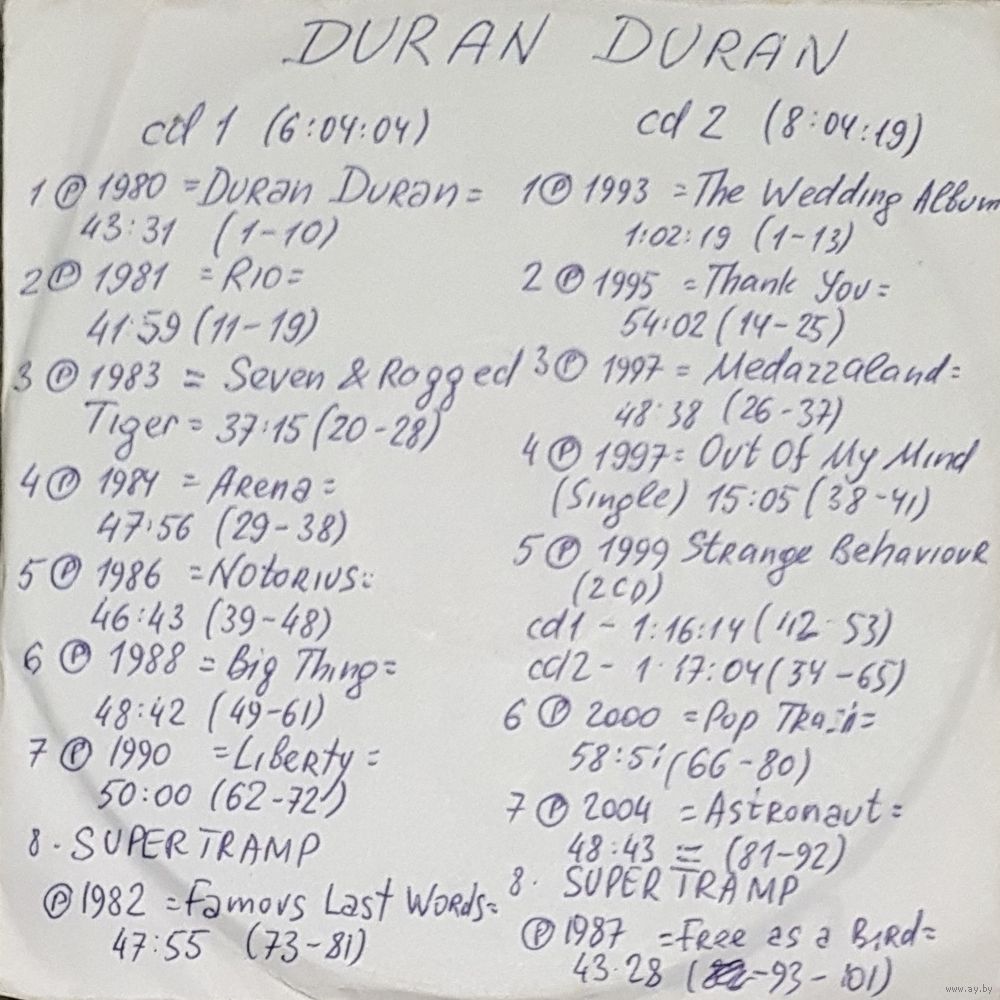 DURAN DURAN
cd 1 (6:04:04)
1 Ⓟ 1980 =DURAN DURAN=
43:31 (1-10)
2 Ⓟ 1981 =RIO=
41:59 (11-19)
3 Ⓟ 1983 = Seven & Ragged
Tiger= 37:15 (20-28)
4 Ⓟ 1984 =Arena=
47:56 (29-38)
5 Ⓟ 1986 =Notorius=
46:43 (39-48)
6 Ⓟ 1988 =Big Thing=
48:42 (49-61)
7 Ⓟ 1990 =Liberty=
50:00 (62-72)
8. SUPERTRAMP
Ⓟ 1982 =Famous Last Words=
47:55 (73-81)
cd 2 (8:04:19)
1 Ⓟ 1993 =The Wedding Album
1:02:19 (1-13)
2 Ⓟ 1995 =Thank You=
54:02 (14-25)
3 Ⓟ 1997 = Medazzaland=
48:38 (26-37)
4 Ⓟ 1997= Out Of My Mind
(Single) 15:05 (38-41)
5 Ⓟ 1999 Strange Behaviour
(2CD)
cd1 - 1:16:14 (42-53)
cd2 - 1:17:04 (34-65)
6 Ⓟ 2000 =Pop Trash=
58:51 (66-80)
7 Ⓟ 2004 =Astronaut=
48:43 = (81-92)
8. SUPERTRAMP
Ⓟ 1987 =Free as a Bird=
43:28 (-93-101)
www.ay.by